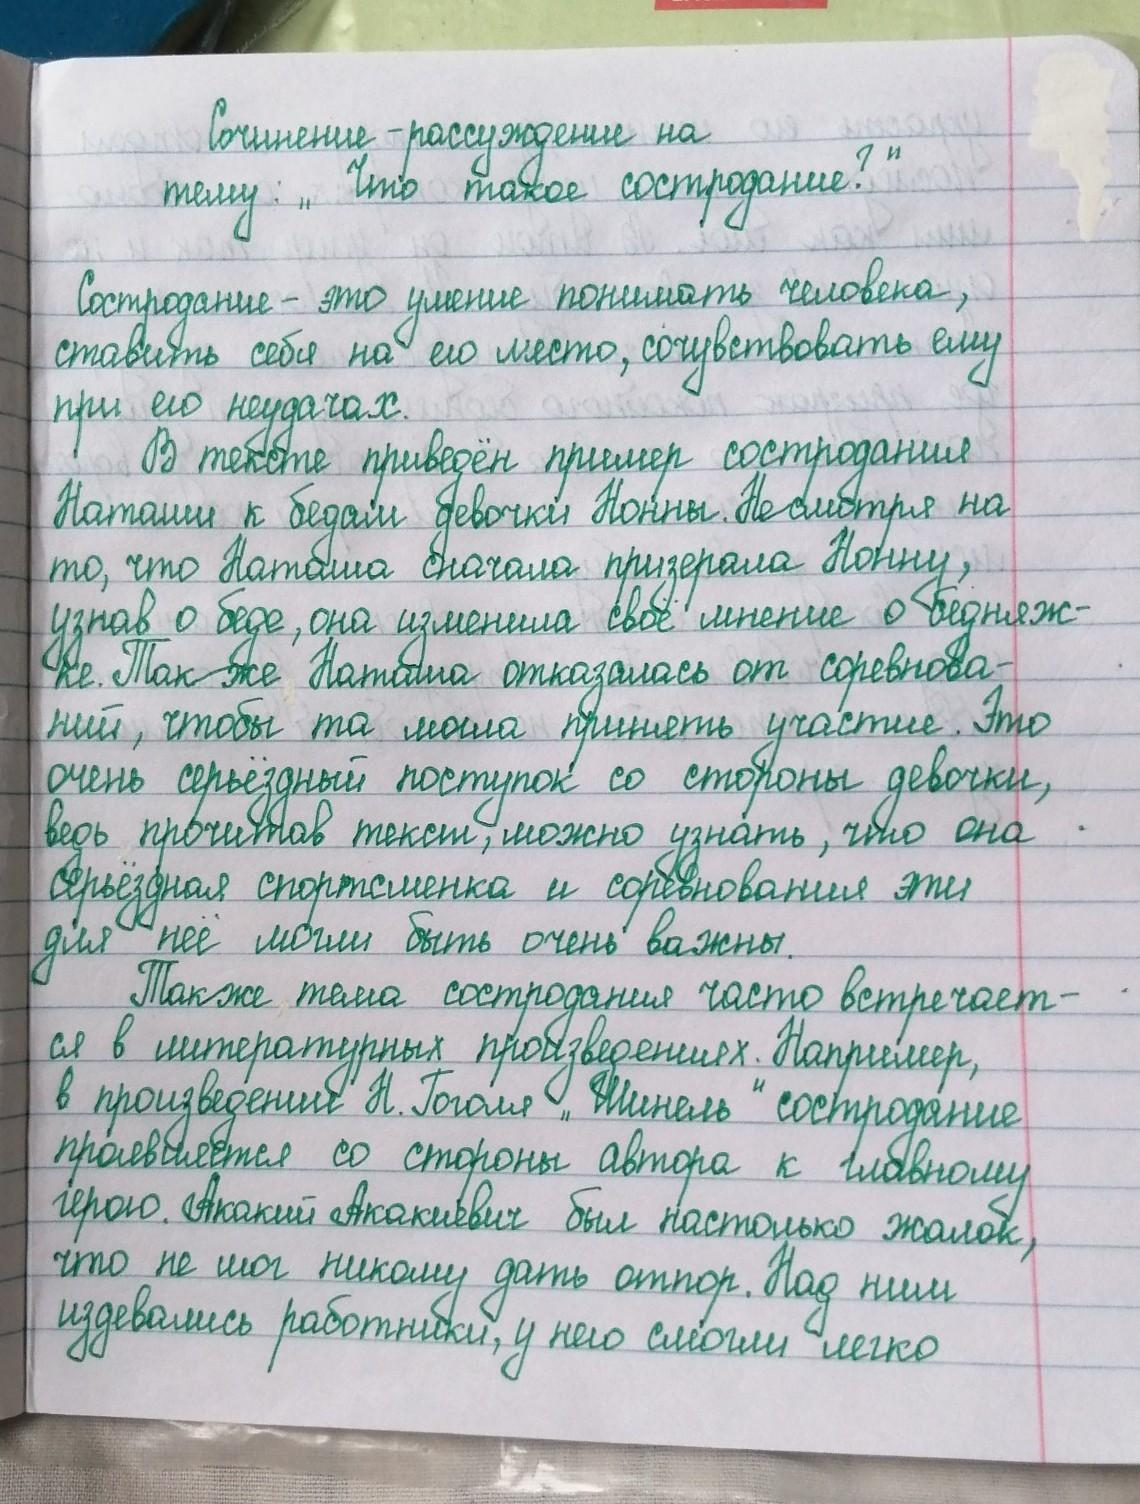 Сочинение-рассуждение на
тему: „Что такое состродание?"
Состродание - это умение понимать человека,
ставить себя на его место, сочувствовать ему
при его неудачах.
В тексте приведён пример состродания
Наташи к бедам девочки Нонны. Несмотря на
то, что Наташа сначала призерала Нонну,
узнав о беде, она изменила своё мнение о бедняж-
ке. Так же Наташа отказалась от соревнова-
ний, чтобы та могла принять участие. Это
очень серьёздный поступок со стороны девочки,
ведь прочитав текст, можно узнать, что она
серьёздная спортсменка и соревнования эти
для неё могли быть очень важны.
Также тема состродания часто встречает-
ся в литературных произведениях. Например,
в произведении Н. Гоголя „Шинель" состродание
проявляется со стороны автора к главному
герою. Акакий Акакиевич был настолько жалок,
что не мог никому дать отпор. Над ним
издевались работники, у него смогли легко